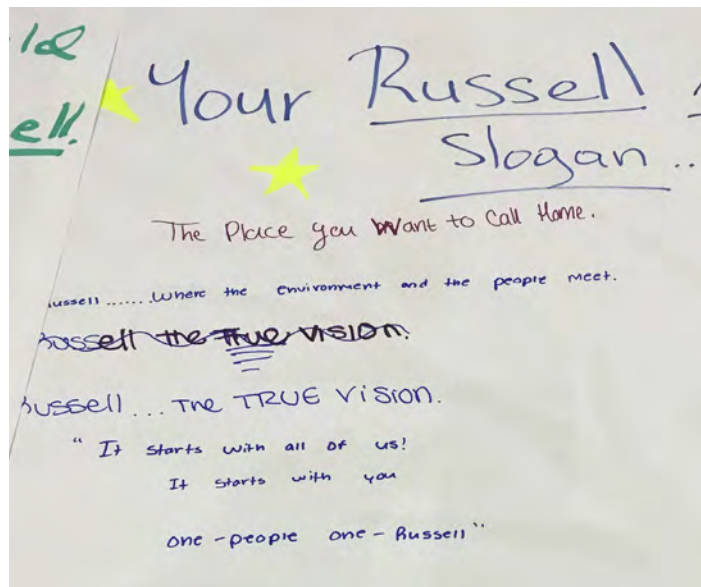 Your Russell
Slogan..
The Place you Want to Call Home.
ussell...... Where the environment and the people meet.
Russell the True vision.
Russell... The TRUE Vision.
"It starts with all of us!
It starts with you
one-people one-Russell"
ell.